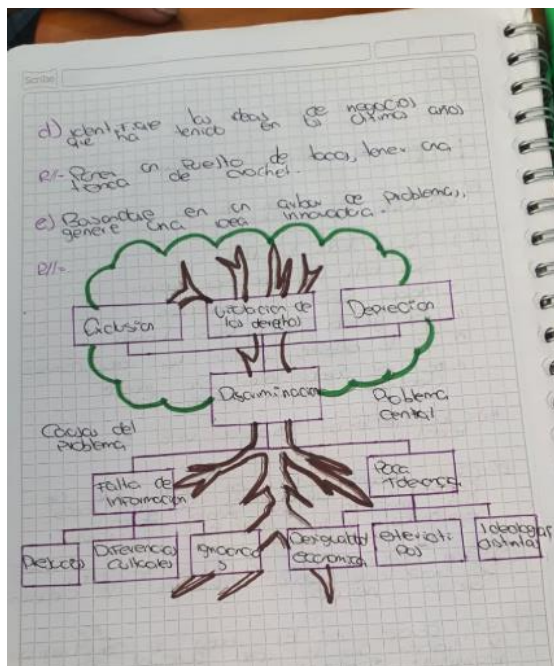 Scribe
d) identifique las ideas de negocios
que ha tenido en los últimos años
R//- Poner un puesto de tacos, tener una
tienda de crochet.
e) Basandose en un arbol de problemas,
genere una idea innovadora.
R//=
Exclusion
Violacion de
los derechos
Depresion
Discriminacion
Problema
central
Causas del
problema
Falta de
informacion
Poca
Tolerancia
Prejuicios
Diferencias
culturales
Desigualdad
economica
estereoti
pos
Ideologias
distintas